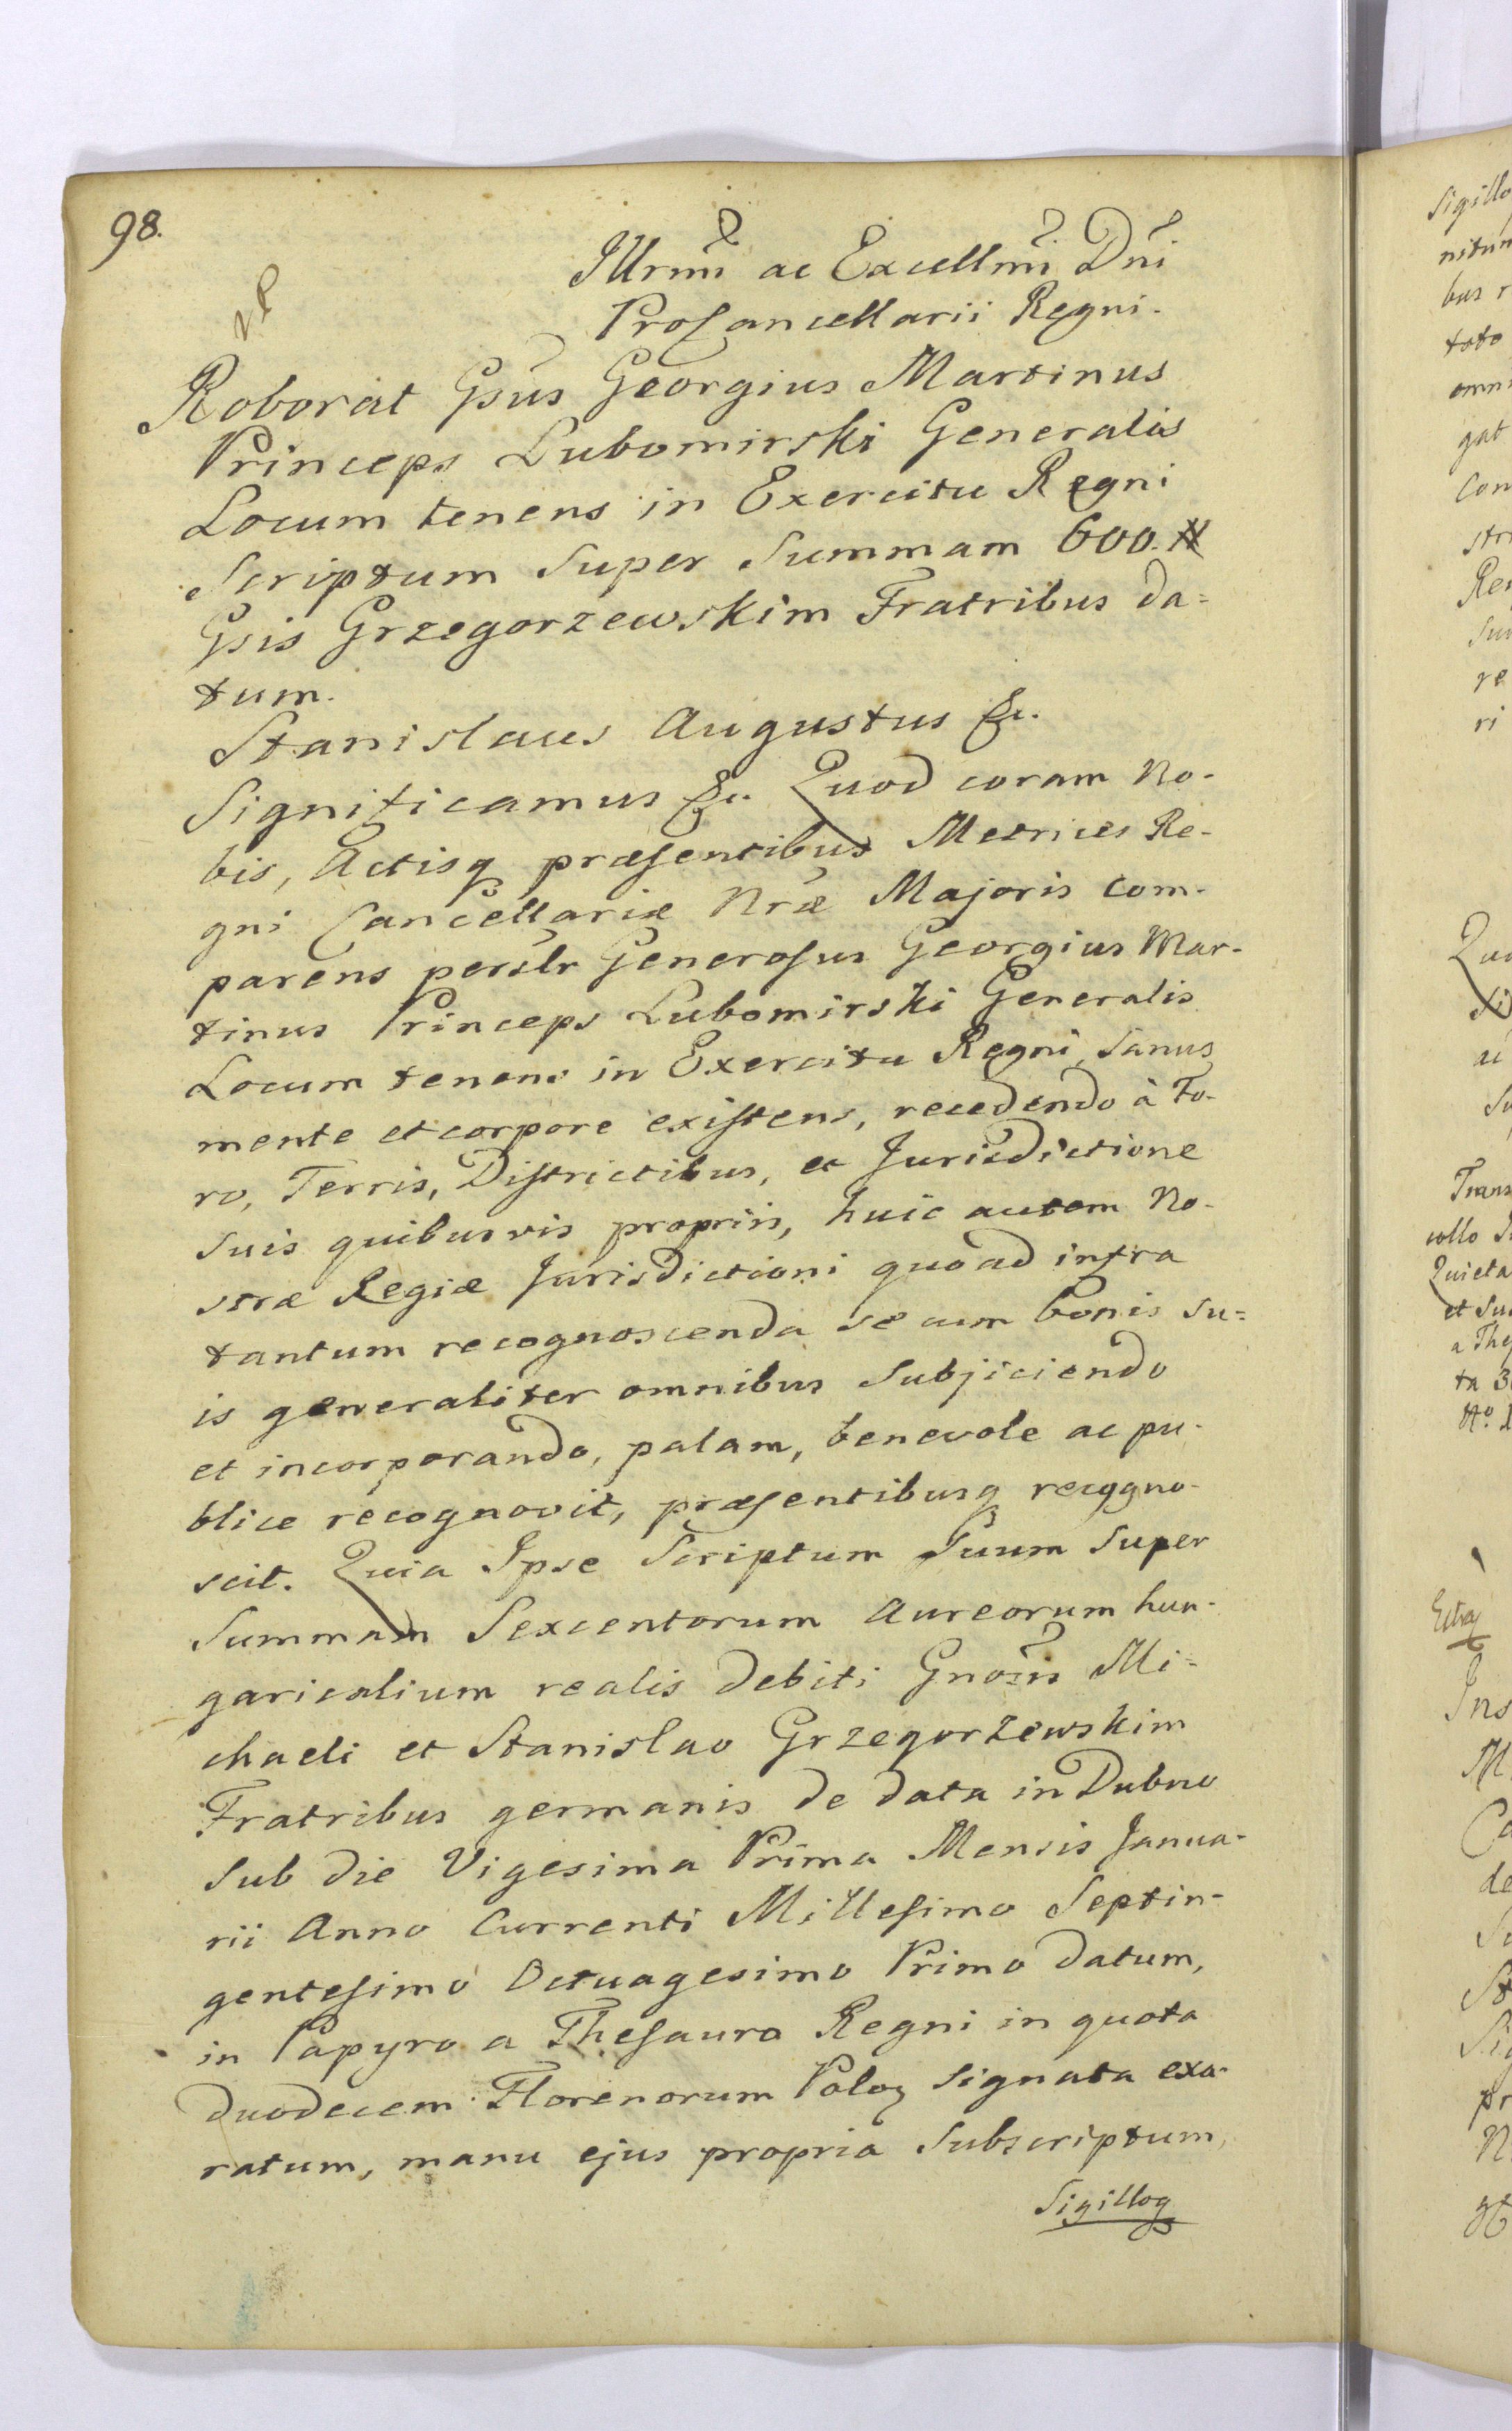 98.
Illrmi ac Excellmi Dni
ProCancellarii Regni.
Roborat Gsus Georgius Martinus
Princeps Lubomirski Generalis
Locum tenens in Exercitu Regni
Scriptum Super Summam 600. #
Gsis Grzegorzewskim Fratribus da=
tum.
Stanislaus Augustus &c.
Significamus &c. Quod coram No-
bis, Actisq præsentibus Metrices Re-
gni Cancellariæ Nræ Majoris Com-
parens perslr Generosus Georgius Mar-
tinus Princeps Lubomirski Generalis
Locum tenens in Exercitu Regni, Sanus
mente et corpore existens, recedendo à Fo-
ro, Terris, Districtibus, et Jurisdictione
suis quibusvis propriis, huic autem No-
stræ Regiæ Jurisdictioni quoad infra
tantum recognoscenda se cum bonis su=
is generaliter omnibus Subjiciendo
et incorporando, palam, benevole ac pu-
blice recognovit, præsentibusq recogno-
scit. Quia Ipse Scriptum Suum Super
Summam Sexcentorum Aureorum hun-
garicalium realis debiti Gnosis Mi=
chaeli et Stanislao Grzegorzewskim
Fratribus germanis de data in Dubno
Sub die Vigesima Prima Mensis Janua-
rii Anno Currenti Millesimo Septin-
gentesimo Octuagesimo Primo datum,
in Papyro a Thesauro Regni in quota
duodecem Florenorum Poloz signata exa-
ratum, manu ejus propria Subscriptum,
Sigilloq
Sigillo
nitum
bus r
toto
omni
gat
Con
str
Re
re
ri
Trans
collo
Quieta
et Su
a Thes
Ins
M
de
pr